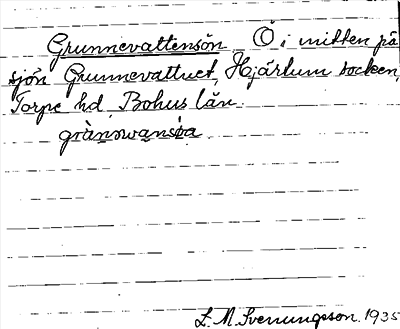 Grunnevattensön Ö i mitten på
sjön Grunnevattnet, Hjärtum socken,
Torpe hd, Bohus län.
grànnwansöa
L. M. Svenungsson. 1935